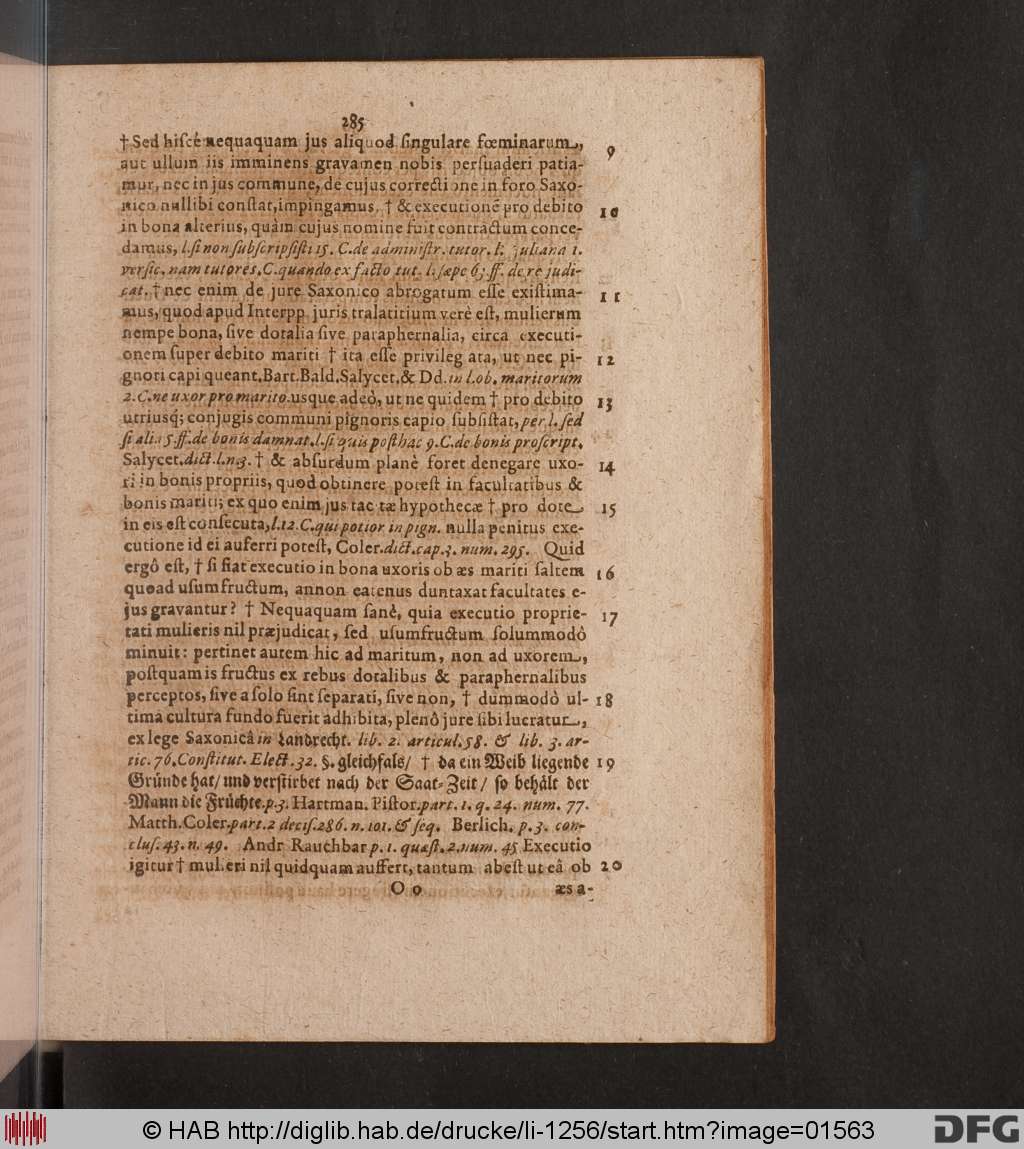 285
†Sed hiſcè nequaquam jus aliquod ſingulare fœminarum, 9
aut ullum iis imminens gravamen nobis perſuaderi patia-
mur, nec in jus commune, de cujus correctione in foro Saxo-
nico nullibi conſtat, impingamus, † & executionē pro debito 10
in bona alterius, quàm cujus nomine fuit contractum conce-
damus, l. ſi non ſubſcripſiſti 15. C. de adminiſtr. tutor. l. Juliana 1.
verſic. nam tutores. C. quando ex facto tut. l. ſæpe 63. ff. de re judi-
cat. † nec enim de jure Saxonico abrogatum eſſe exiſtima- 11
mus, quod apud Interpp. juris tralatitium verè eſt, mulierum
nempe bona, ſive dotalia ſive paraphernalia, circa executi-
onem ſuper debito mariti † ita eſſe privileg ata, ut nec pi- 12
gnori capi queant. Bart. Bald. Salycet. & Dd. in l. ob. maritorum
2. C. ne uxor pro marito. usque adeò, ut ne quidem † pro debito 13
utriusq́; conjugis communi pignoris capio ſubſiſtat, per l. ſed
ſi alia 5. ff. de bonis damnat. l. ſi quis poſthac 9. C. de bonis proſcript.
Salycet. dict. l. n. 3. † & abſurdum planè foret denegare uxo- 14
ri in bonis propriis, quod obtinere poteſt in facultatibus &
bonis mariti; ex quo enim jus tac tæ hypothecæ † pro dote 15
in eis eſt conſecuta, l. 12. C. qui potior. in pign. nulla penitus exe-
cutione id ei auferri poteſt, Coler. dict. cap. 3. num. 295. Quid
ergô eſt, † ſi fiat executio in bona uxoris ob æs mariti ſaltem 16
quoad uſumfructum, annon eatenus duntaxat facultates e-
jus gravantur? † Nequaquam ſanè, quia executio proprie- 17
tati mulieris nil præjudicat, ſed uſumfructum ſolummodô
minuit: pertinet autem hic ad maritum, non ad uxorem,
poſtquam is fructus ex rebus dotalibus & paraphernalibus
perceptos, ſive a ſolo ſint ſeparati, ſive non, † dummodò ul- 18
tima cultura fundo fuerit adhibita, plenô jure ſibi lucratur,
ex lege Saxonicâ in Landrecht. lib. 2. articul. 58. & lib. 3. ar-
tic. 76. Conſtitut. Elect. 32. §. gleichfals/ † da ein Weib liegende 19
Gründe hat/ und verſtirbet nach der Saat-Zeit/ ſo behält der
Mann die Früchte. p. 3. Hartman. Piſtor. part. 1. q. 24. num. 77.
Matth. Coler. part. 2 deciſ. 286. n. 101. & ſeq. Berlich. p. 3. con-
cluſ. 43. n. 49. Andr Rauchbar p. 1. quæſt. 2. num. 45 Executio
igitur † mulieri nil quidquam auffert, tantum abeſt ut eâ ob 20
O o æs a-
© HAB http://diglib.hab.de/drucke/li-1256/start.htm?image=01563
DFG